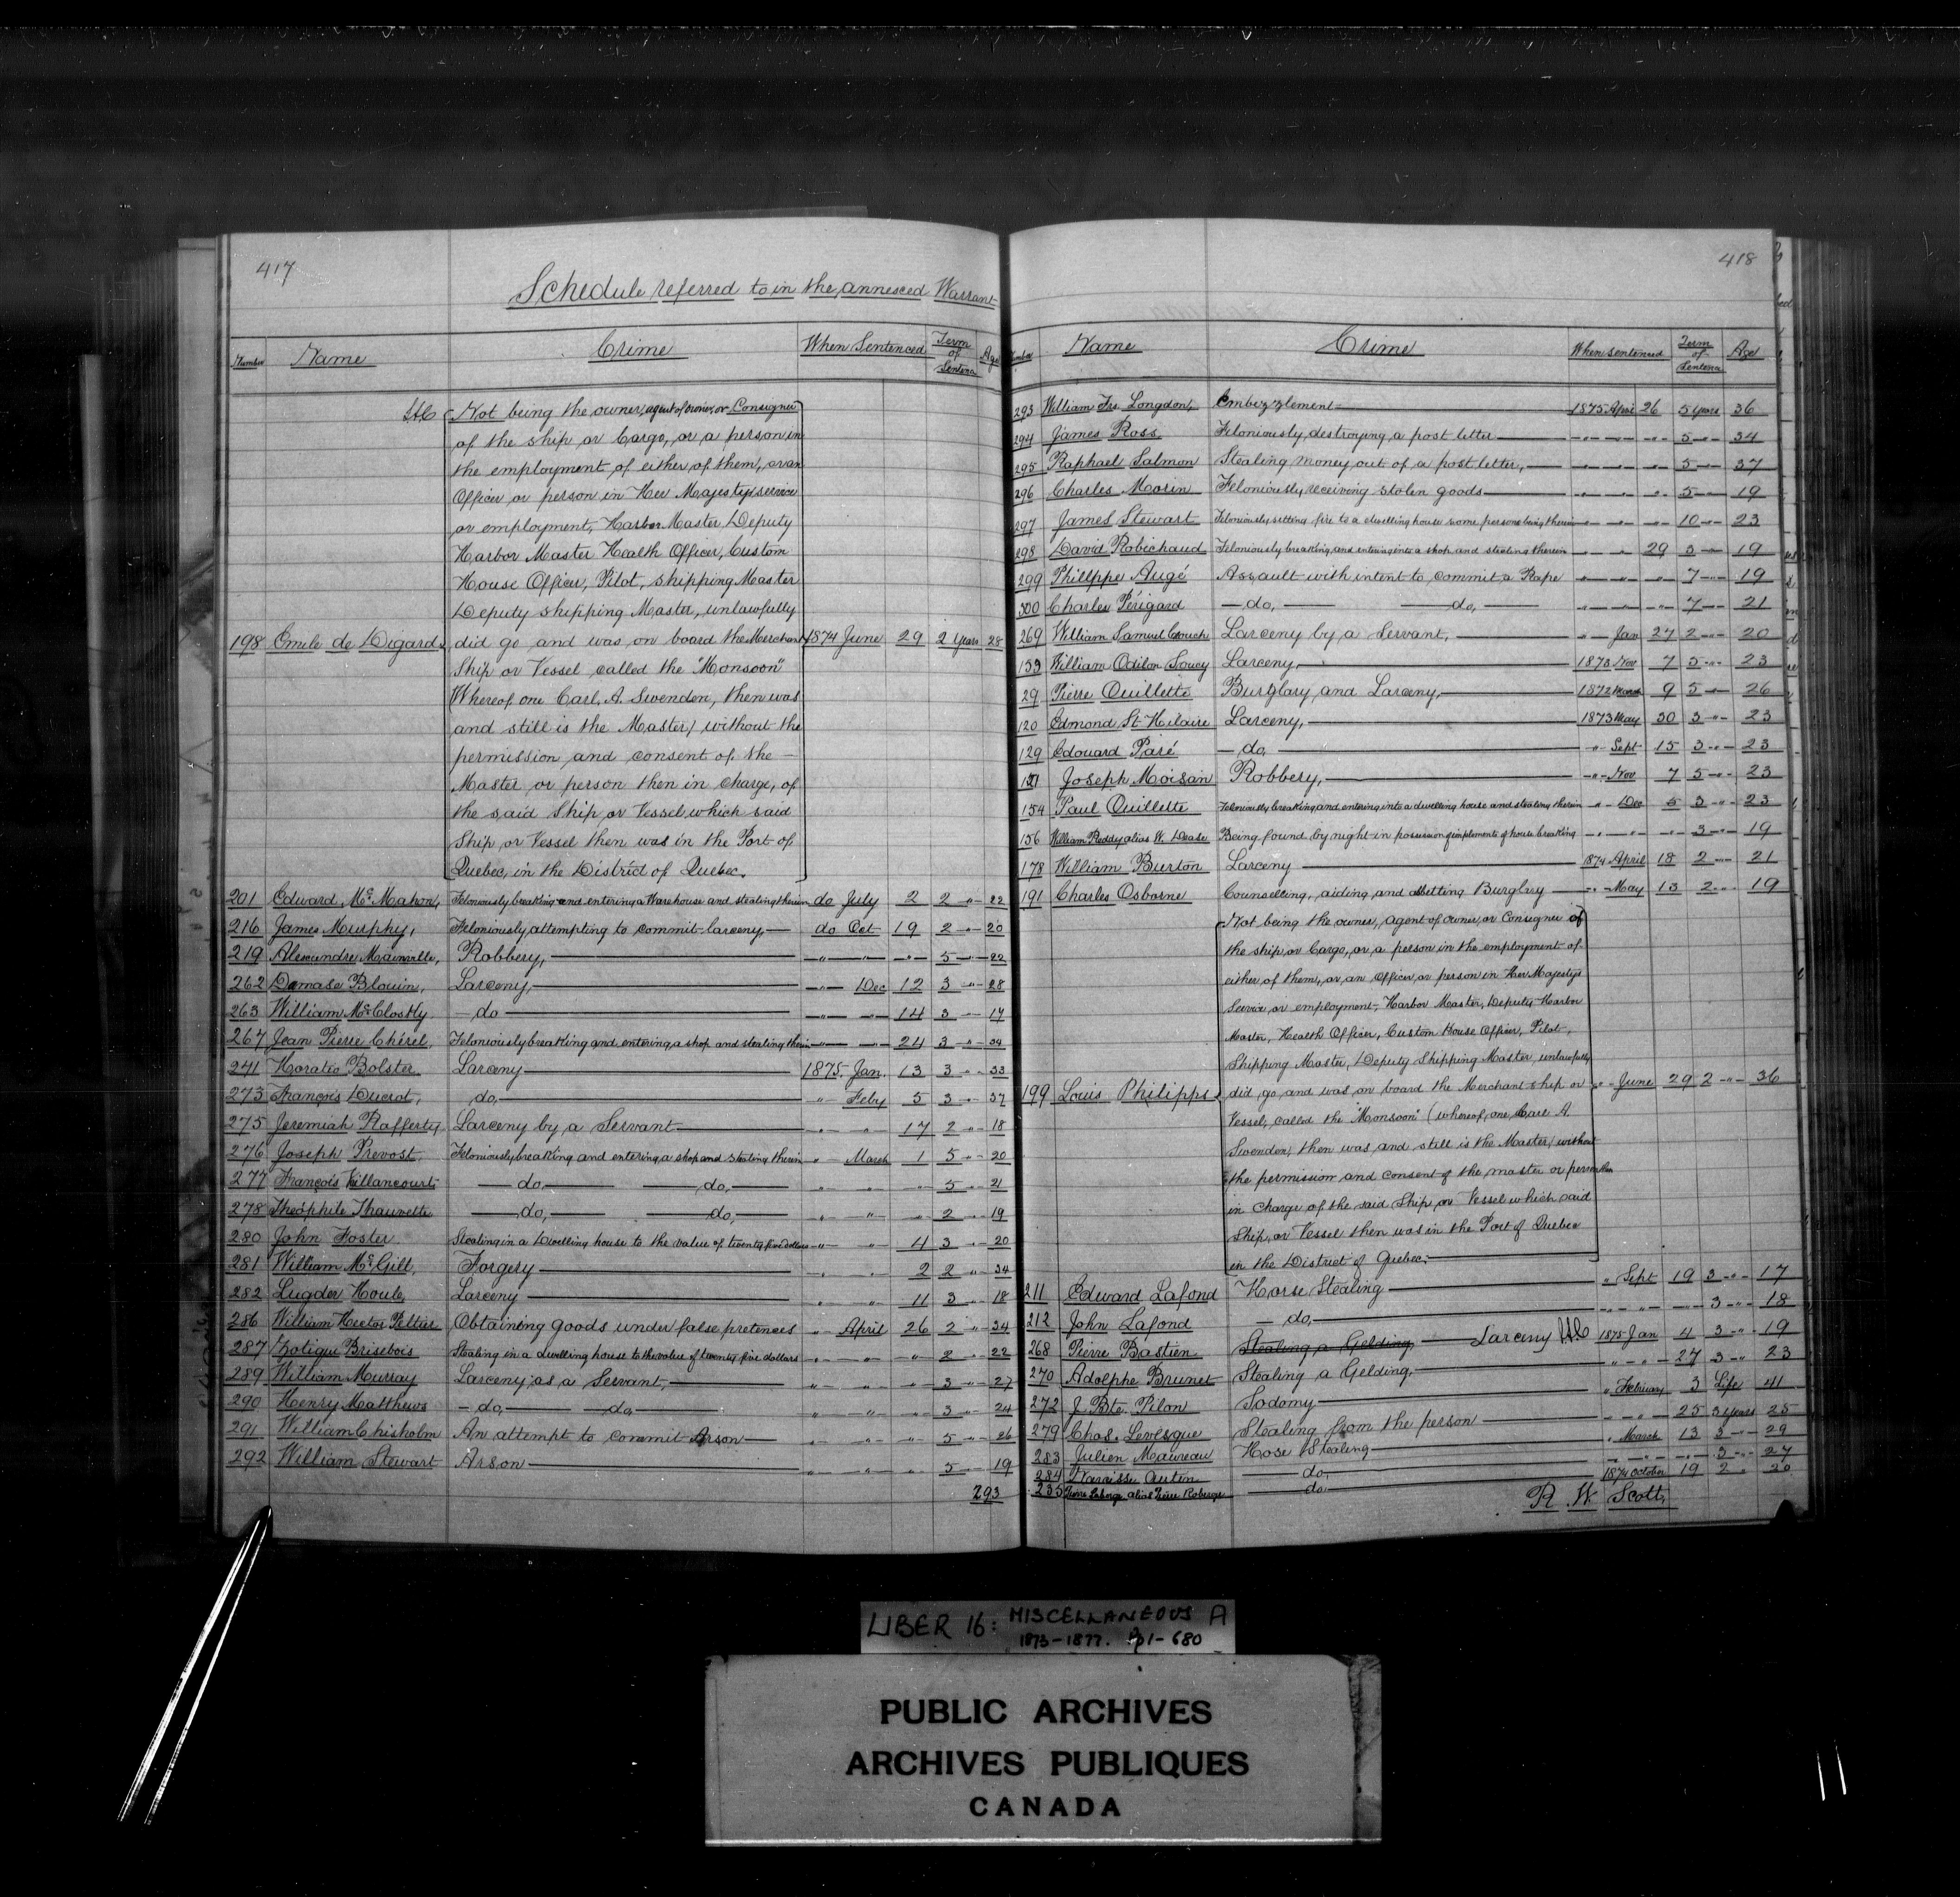 417
Schedule referred to in the annexed Warrant
Number Name Crime When Sentenced Term of Sentence Age
Not being the owner, agent of owner, or Consignee
of the ship or Cargo, or a person in
the employment of either of them, or an
Officer or person in Her Majestys service
or employment, Harbor Master Deputy
Harbor Master Health Officer, Custom
House Officer, Pilot, shipping Master
Deputy shipping Master, unlawfully
198 Emile de Digard did go and was on board the Merchant 1874 June 29 2 Years 28
Ship or Vessel called the "Monsoon"
Whereof one Carl. A. Swenden, then was
and still is the Master) without the
permission and consent of the
Master or person then in charge, of
the said Ship or Vessel which said
Ship or Vessel then was in the Port of
Quebec, in the District of Quebec.
201 Edward McMahon, Feloniously breaking and entering a Warehouse and stealing therein do July 2 2 " 22
216 James Murphy, Feloniously attempting to commit larceny, do Oct 19 2 " 20
219 Alexandre Mainville, Robbery, " " " 5 " 22
262 Damase Blouin, Larceny, " Dec 12 3 " 28
263 William McClosky. do " " 14 3 " 17
267 Jean Pierre Chérel, Feloniously breaking and entering a shop and stealing therein " " 24 3 " 34
241 Horatio Bolster Larceny 1875. Jan. 13 3 " 33
273 François Ducrot, do, " Feby 5 3 " 37
275 Jeremiah Rafferty, Larceny by a Servant " " 17 2 " 18
276 Joseph Prevost, Feloniously breaking and entering a shop and stealing therein " March 1 5 " 20
277 François Villancourt do, do, " " " 5 " 21
278 Theóphile Thauvette do, do, " " " 2 " 19
280 John Foster Stealing in a Dwelling house to the value of twenty five dollars " " 4 3 " 20
281 William McGill, Forgery " " 2 2 " 34
282 Lugder Houle, Larceny " " 11 3 " 18
286 William Hector Peltier Obtaining goods under false pretences " April 26 2 " 34
287 Zotique Brisebois Stealing in a dwelling house to the value of twenty five dollars " " " 2 " 22
289 William Murray Larceny as a Servant, " " " 3 " 27
290 Henry Matthews do, do, " " " 3 " 24
291 William Chisholm An attempt to commit Arson " " " 5 " 26
292 William Stewart Arson " " " 5 " 19
293
418
Number Name Crime When Sentenced Term of Sentence Age
293 William Frs. Longdon, Embezzlement 1875 April 26 5 Years 36
294 James Ross Feloniously destroying a post letter " " " 5 " 34
295 Raphael Salmon Stealing money out of a post letter, " " " 5 " 37
296 Charles Morin Feloniously receiving stolen goods " " " 5 " 19
297 James Stewart Feloniously setting fire to a dwelling house some persons being therein " " " 10 " 23
298 David Robichaud Feloniously breaking and entering into a shop and stealing therein " " 29 3 " 19
299 Phillppe Augé Assault with intent to commit a Rape " " " 7 " 19
300 Charles Périgard do, do, " " " 7 " 21
269 William Samuel Couch Larceny by a Servant, " Jan 27 2 " 20
153 William Odilon Soucy Larceny, 1873 Nov 7 5 " 23
29 Pierre Ouillette Burglary and Larceny, 1872 March 9 5 " 26
120 Edmond St. Hilaire Larceny, 1873 May 30 3 " 23
129 Edouard Paré do, " Sept 15 3 " 23
Joseph Moisan Robbery, " Nov 7 5 " 23
154 Paul Ouillette Feloniously breaking and entering into a dwelling house and stealing therein " Dec 5 3 " 23
156 William Reddy alias W. Dease Being found by night in possession of implements of house breaking " " " 3 " 19
178 William Burton Larceny 1874 April 18 2 " 21
191 Charles Osborne Counselling, aiding, and abetting Burglary " May 13 2 " 19
Not being the owner, agent of owner, or Consignee of
the ship or Cargo, or a person in the employment of
either of them, or an Officer, or person in Her Majestys
Service, or employment, Harbor Master, Deputy Harbor
Master, Health Officer, Custom House Officer, Pilot,
Shipping Master, Deputy Shipping Master, unlawfully
199 Louis Philipps did, go, and was on board the Merchant ship or " June 29 2 " 36
Vessel, called the "Monsoon" (whereof, one, Carl A.
Swenden, then was and still is the Master) without
the permission and consent of the master or person then
in charge of the said Ship, or Vessel which said
Ship, or Vessel then was in the Port of Quebec
in the District of Quebec.
211 Edward Lafond Horse Stealing " Sept 19 3 " 17
212 John Lafond do, " " " 3 " 18
268 Pierre Bastien Stealing a Gelding, Larceny 1875 Jan 4 3 " 19
270 Adolphe Brunet Stealing a Gelding, " " 27 3 " 23
272 J. Bte. Pilon Sodomy " February 3 Life 41
279 Chas. Levesque Stealing from the person " " 25 3 years 25
283 Julien Maureau Hose Stealing " March 13 3 " 29
284 Narcisse Autin do, " " " 3 " 27
235 alias Pierre Roberge do 1874 October 19 2 " 20
R. W. Scott,
LIBER 16: MISCELLANEOUS A
1873-1877. Pp 1-680
PUBLIC ARCHIVES
ARCHIVES PUBLIQUES
CANADA